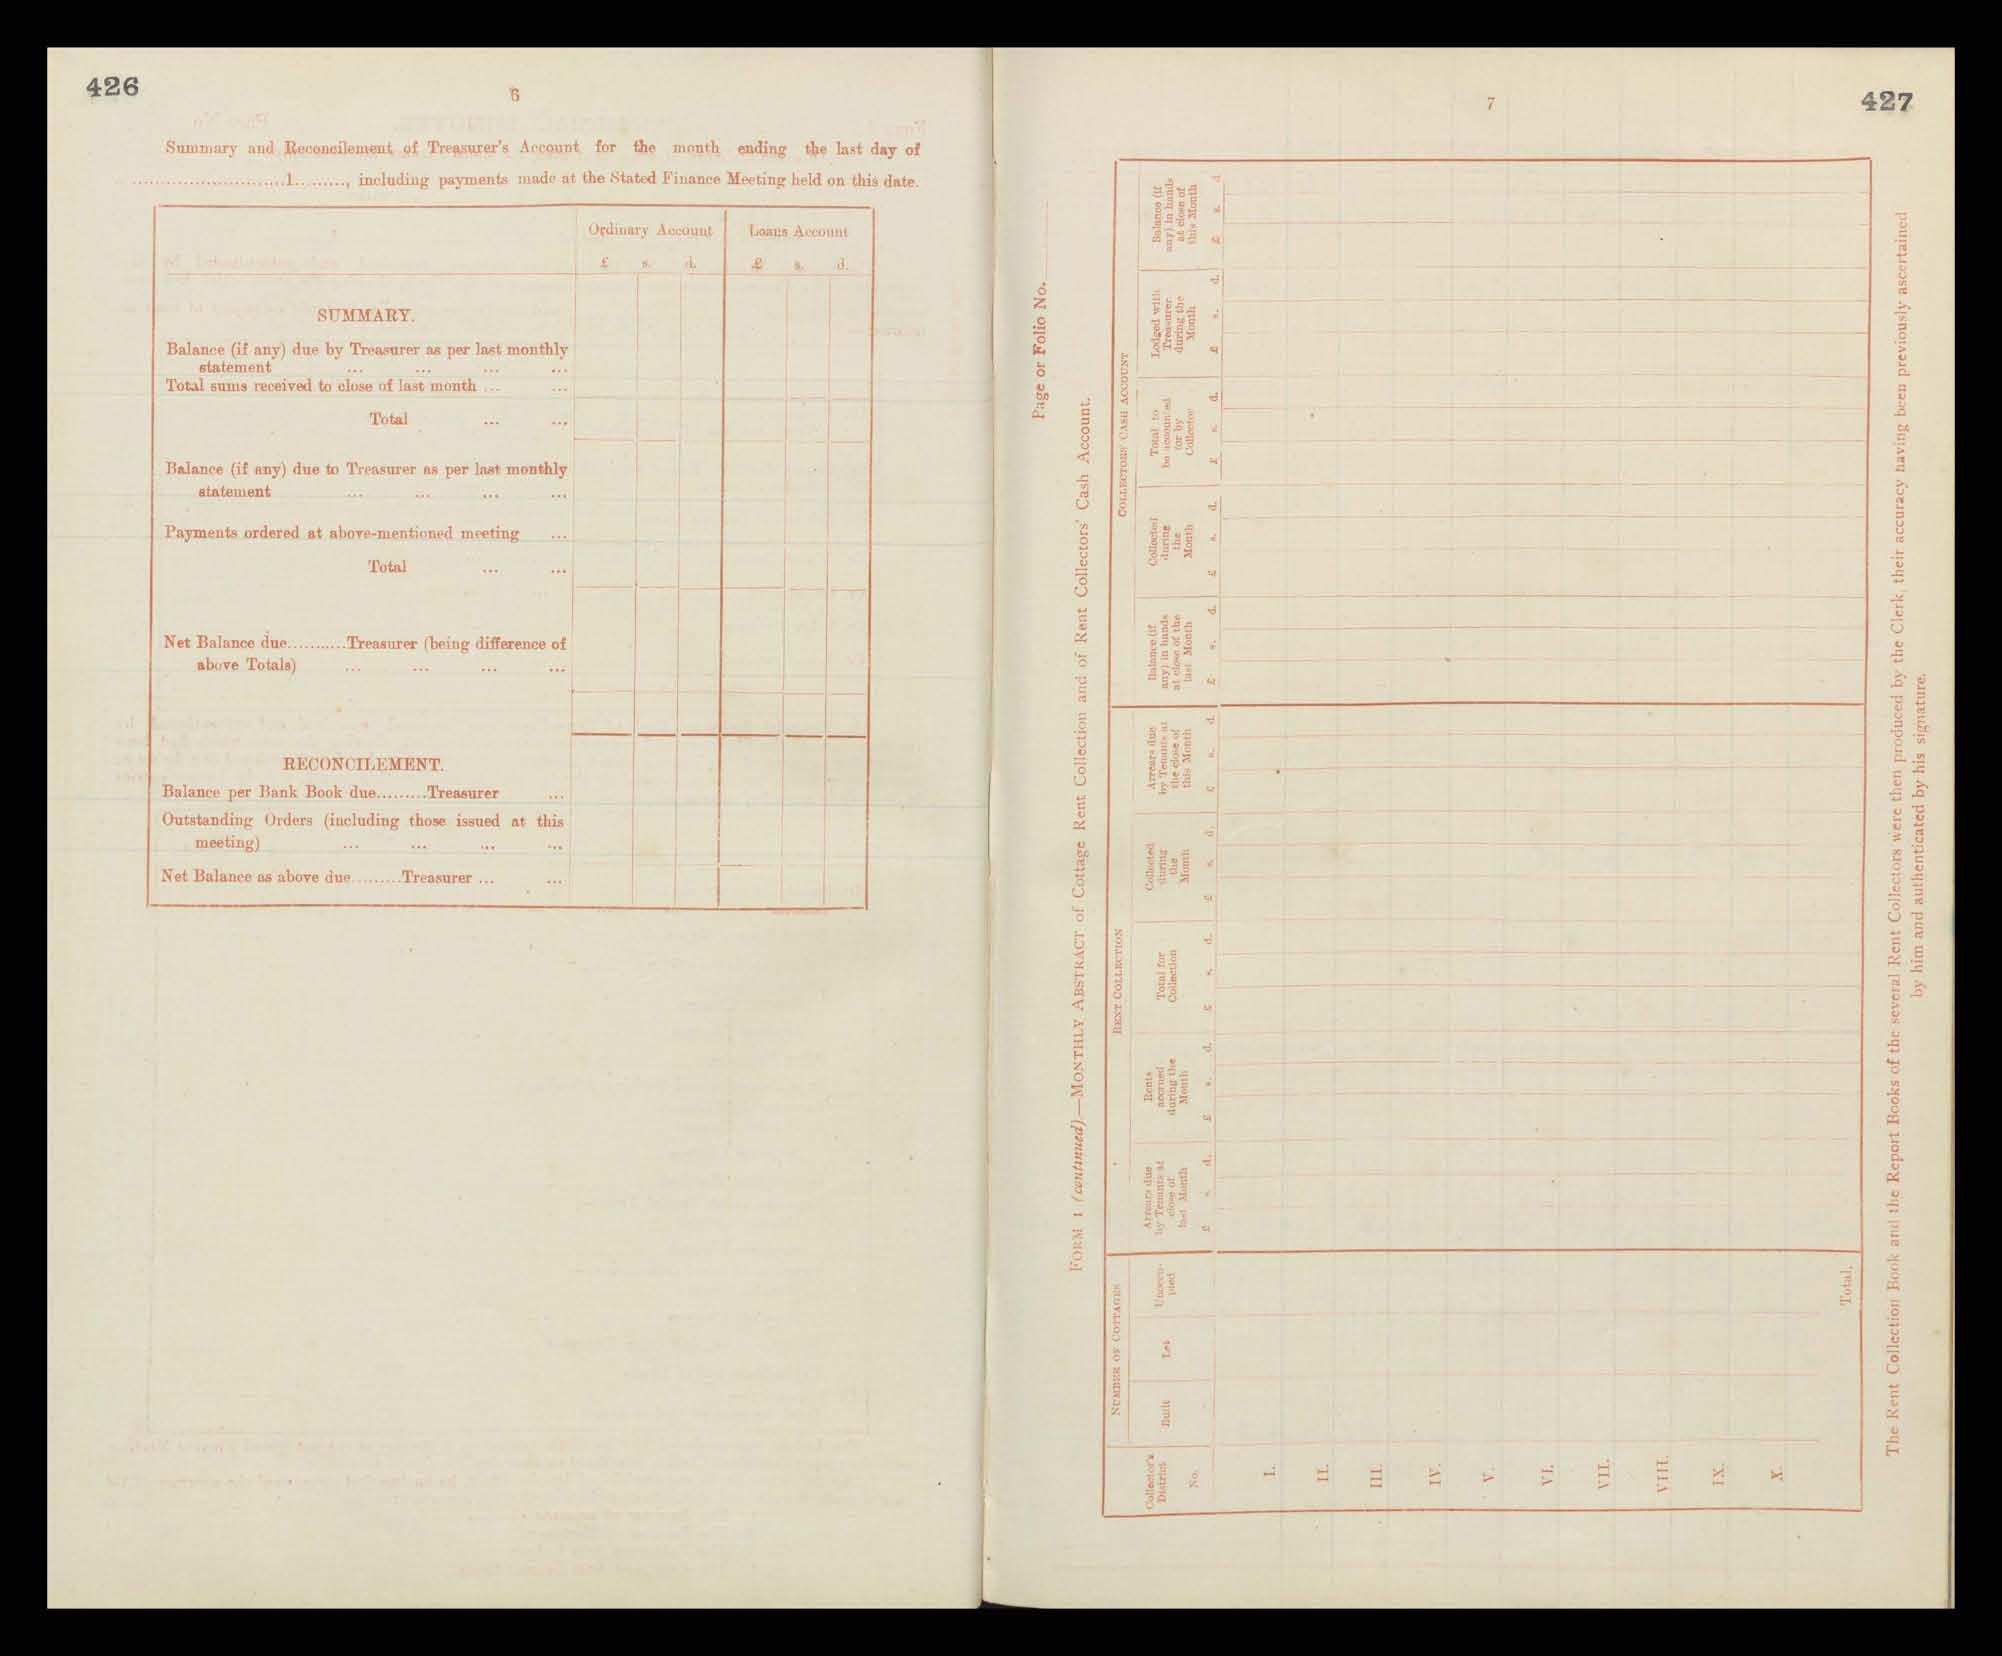 426
6
Summary and Reconcilement of Treasurer's Account for the month ending the last day of
............................1........., including payments made at the Stated Finance Meeting held on this date.
Ordinary Account Loans Account
£ s. d. £ s. d.
SUMMARY.
Balance (if any) due by Treasurer as per last monthly
statement ... ... ... ...
Total sums received to close of last month ... ...
Total ... ...
Balance (if any) due to Treasurer as per last monthly
statement ... ... ... ...
Payments ordered at above-mentioned meeting ...
Total ... ...
Net Balance due...........Treasurer (being difference of
above Totals) ... ... ... ...
RECONCILEMENT.
Balance per Bank Book due.........Treasurer ...
Outstanding Orders (including those issued at this
meeting) ... ... ... ...
Net Balance as above due.........Treasurer ... ...
427
7
Page or Folio No.
FORM 1 (continued).—MONTHLY ABSTRACT of Cottage Rent Collection and of Rent Collectors' Cash Account.
NUMBER OF COTTAGES RENT COLLECTION COLLECTORS' CASH ACCOUNT
Collector's
District
No.
Built
Let
Unoccu-
pied
Arrears due
by Tenants at
close of
last Month
£ s. d.
Rents
accrued
during the
Month
£ s. d.
Total for
Collection
£ s. d.
Collected
during
the
Month
£ s. d.
Arrears due
by Tenants at
the close of
this Month
£ s. d.
Balance (if
any) in hands
at close of the
last Month
£ s. d.
Collected
during
the
Month
£ s. d.
Total to
be accounted
for by
Collector
£ s. d.
Lodged with
Treasurer
during the
Month
£ s. d.
Balance (if
any) in hands
at close of
this Month
£ s. d.
I.
II.
III.
IV.
V.
VI.
VII.
VIII.
IX.
X.
Total.
The Rent Collection Book and the Report Books of the several Rent Collectors were then produced by the Clerk, their accuracy having been previously ascertained
by him and authenticated by his signature.